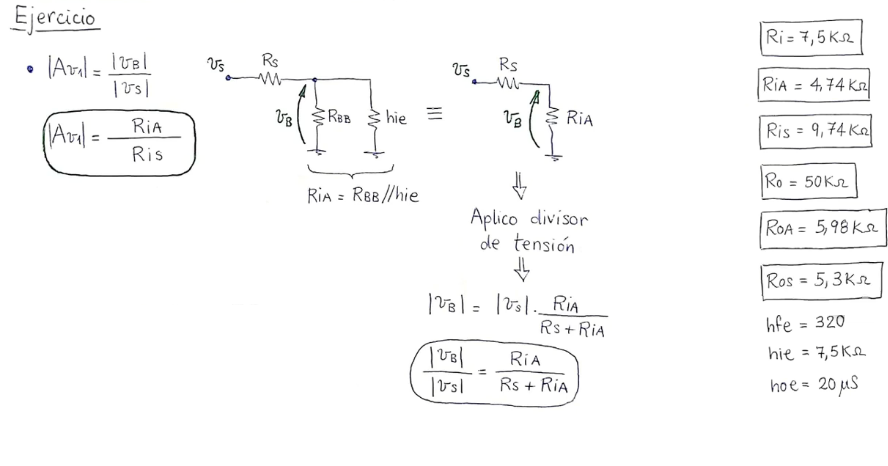 Ejercicio
• |Av1| = |vB| / |vs|
|Av1| = RiA / Ris
vs
Rs
vB
RBB
hie
RiA = RBB//hie
≡
vs
Rs
vB
RiA
⇓
Aplico divisor
de tensión
⇓
|vB| = |vs| . RiA / Rs + RiA
|vB| / |vs| = RiA / Rs + RiA
Ri = 7,5KΩ
RiA = 4,74KΩ
Ris = 9,74KΩ
Ro = 50KΩ
RoA = 5,98KΩ
Ros = 5,3KΩ
hfe = 320
hie = 7,5KΩ
hoe = 20μS